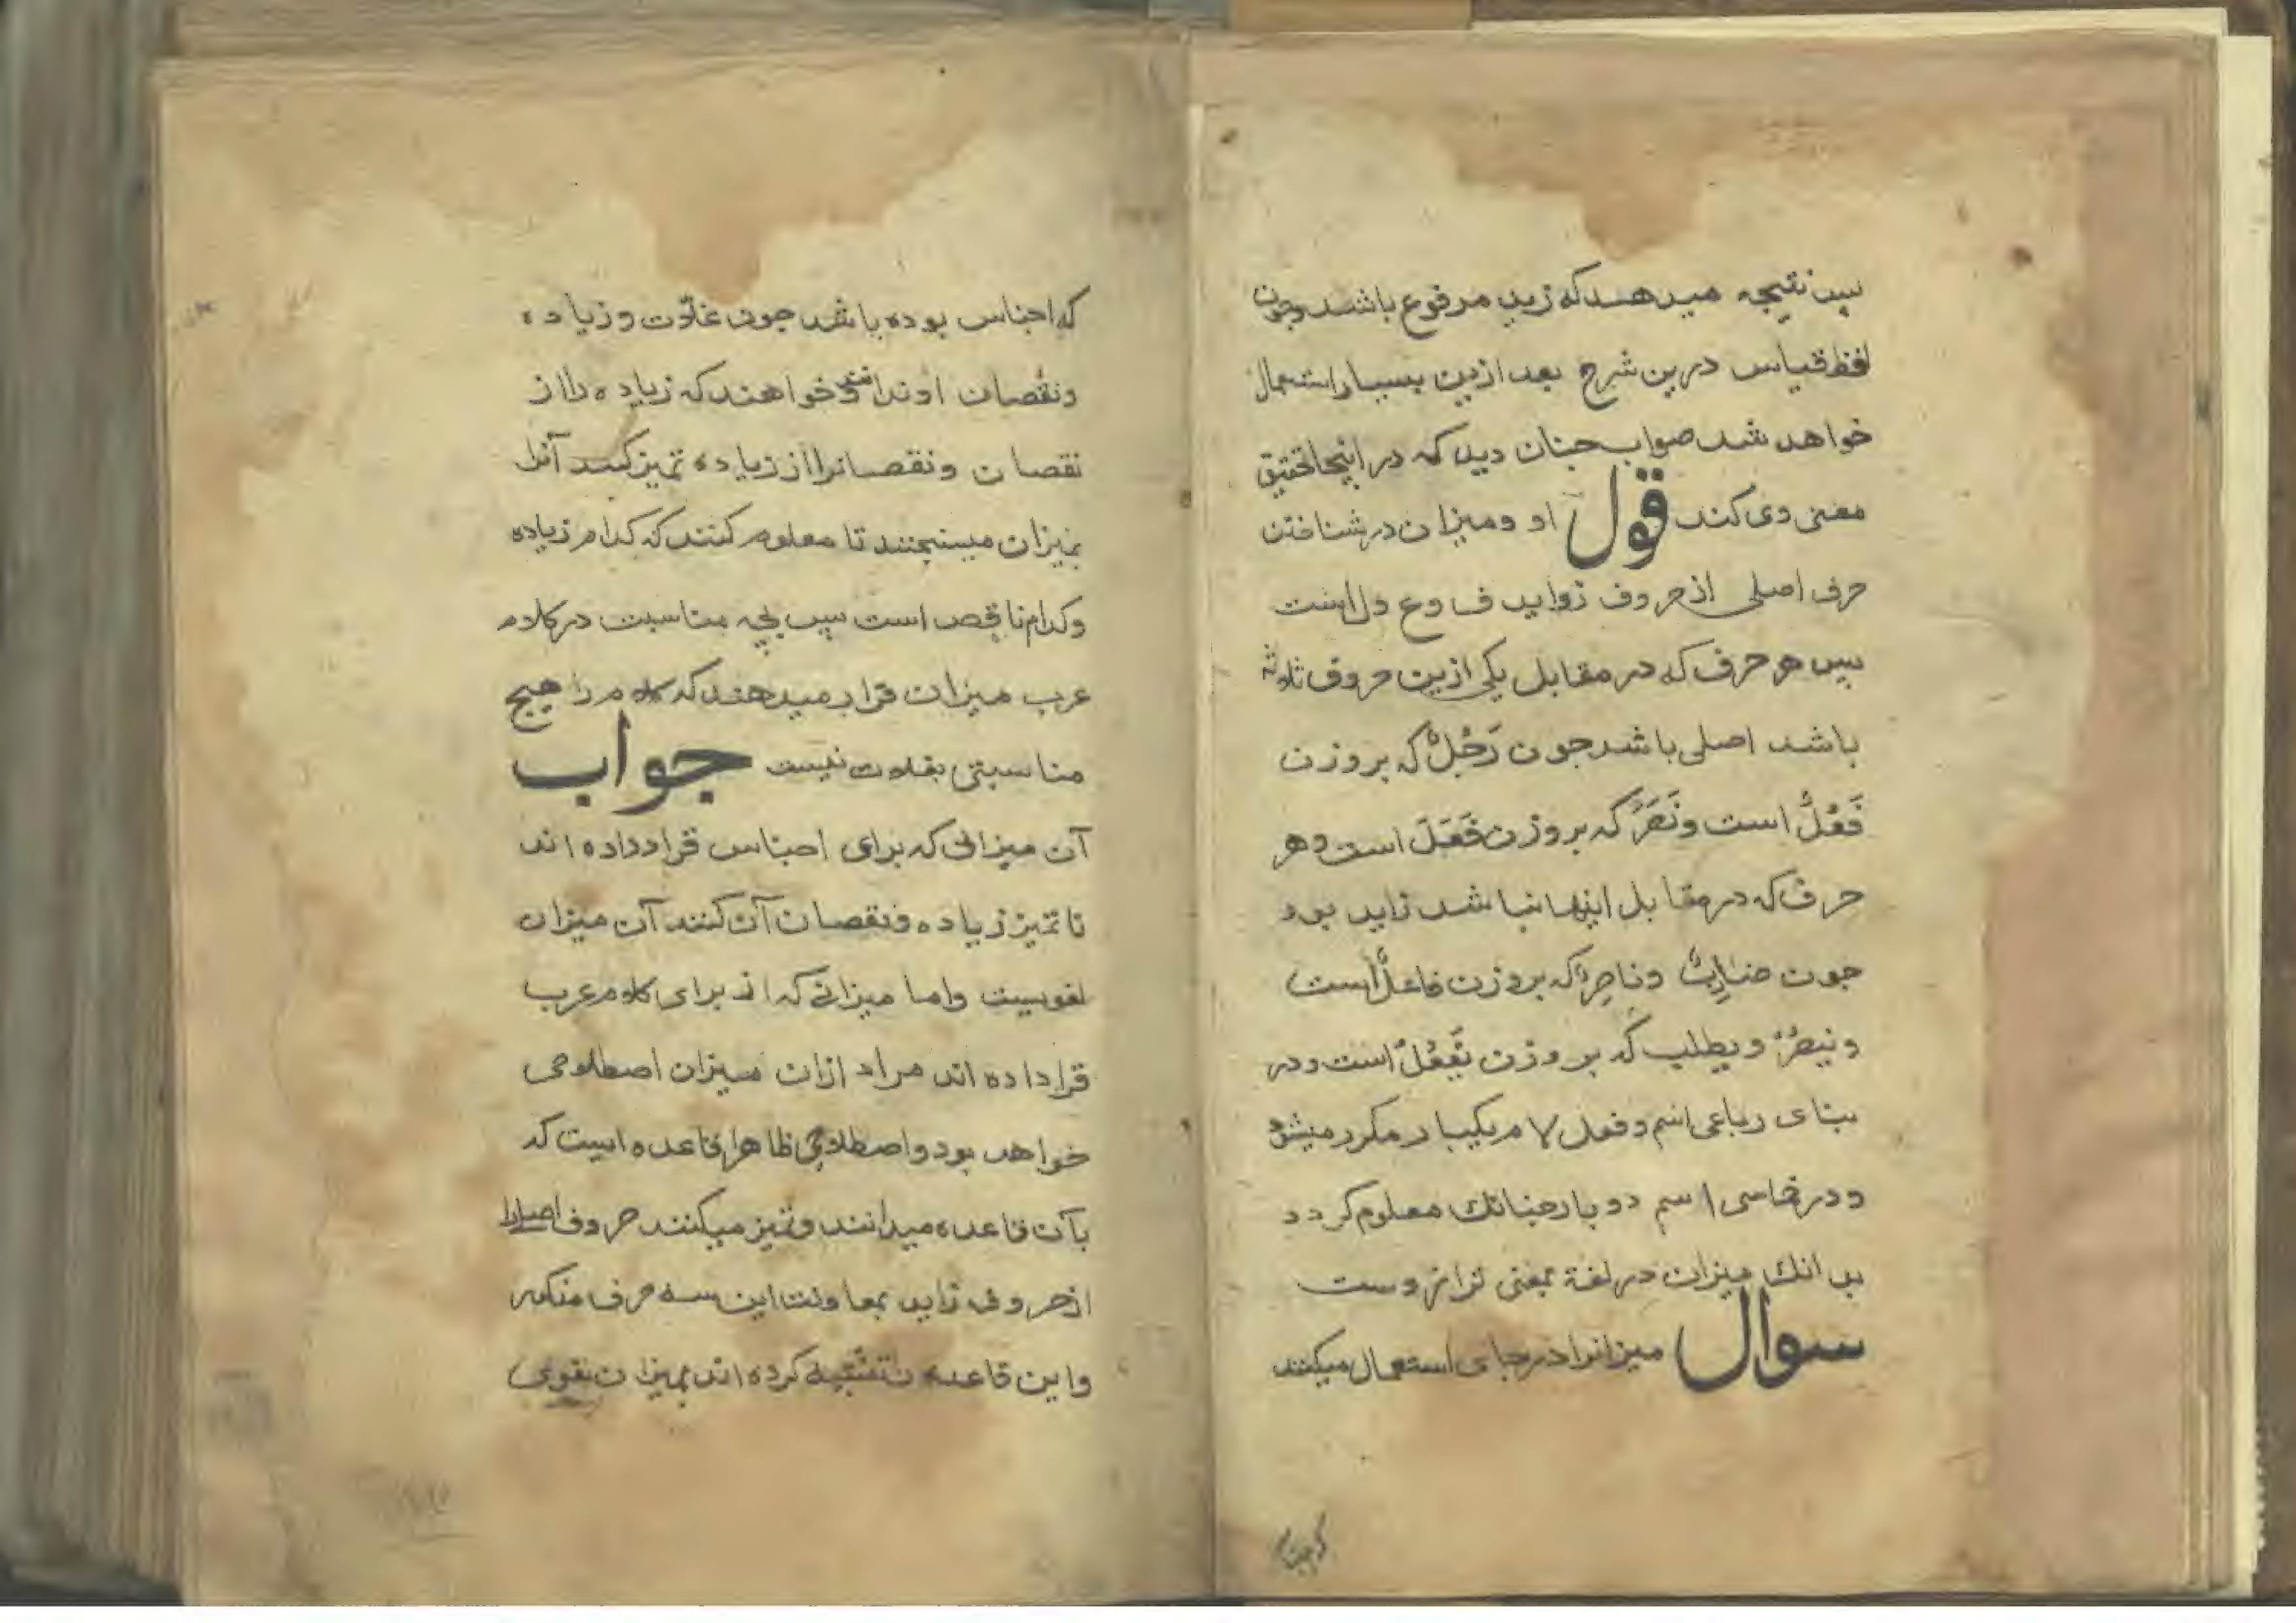 پس نتیجه میدهند که زید مرفوع باشد و چون
لفظ قیاس درین شرح بعد ازین بسیار استعمال
خواهد شد صواب چنان دید که در اینجا تحقیق
معنی وی کند قول او و میزان در شناختن
حرف اصلی از حروف زواید ف و ع و ل است
پس هر حرف که در مقابل یکی ازین حروف ثلاثه
باشد اصلی باشد جون رَجُلٌ که بر وزن
فَعُلٌ است و نَصَرَ که بر وزن فَعَلَ است و هر
حرف که در مقابل اینها نباشد زاید بود
جون ضاربٌ و ناصرٌ که بر وزن فاعلٌ است
و ینصرُ و یطلب که بر وزن یَفْعُلُ است و در
بنای رباعی اسم و فعل لام یکبار مکرر میشود
و در خماسی اسم دو بار چنانک معلوم کردد
بدانک میزان در لغة بمعنی ترازوست
سوال میزانرا در جای استعمال میکنند
که اجناس
که اجناس بوده باشد جون غلّات و زیاده
و نقصان او ندانند و خواهند که زیاده را از
نقصان و نقصانرا از زیاده تمیز کنند آنرا
بمیزان میسنجند تا معلوم کنند که کدام زیاده
و کدام ناقص است پس بچه مناسبت در کلام
عرب میزان قرار میدهند که کلام را هیچ
مناسبتی بغلات نیست جواب
آن میزانی که برای اجناس قرار داده اند
تا تمیز زیاده و نقصان آن کنند آن میزان
لغویست و اما میزانی که از برای کلام عرب
قرار داده اند مراد ازان میزان اصطلاحی
خواهد بود و اصطلاحی ظاهرا قاعده ایست که
بآن قاعده میدانند و تمیز میکنند حروف اصلیرا
از حروف زاید بمعاونت این سه حرف مذکور
و این قاعده تشبیه کرده اند بمیزان لغوی